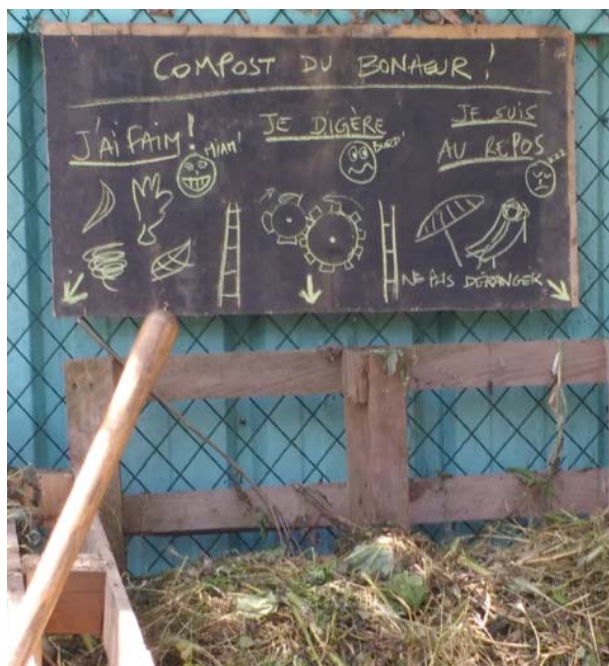 COMPOST DU BONHEUR !
J'AI FAIM !
MIAM !
JE DIGÈRE
BURP !
JE SUIS
AU REPOS
zzz
NE PAS DÉRANGER